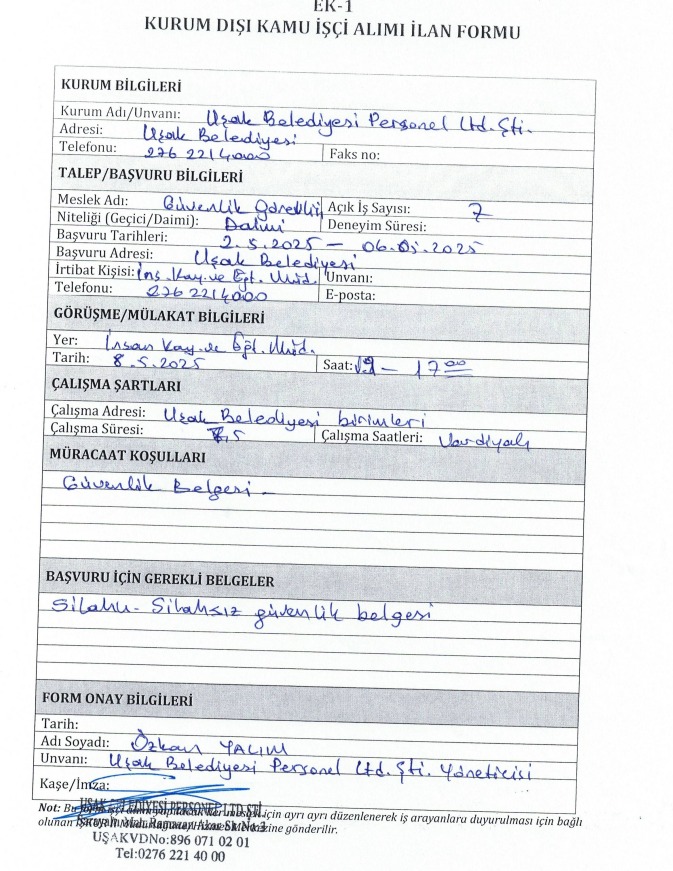 EK-1
KURUM DIŞI KAMU İŞÇİ ALIMI İLAN FORMU
KURUM BİLGİLERİ
Kurum Adı/Unvanı: Uşak Belediyesi Personel Ltd. Şti.
Adresi: Uşak Belediyesi
Telefonu: 276 2214000 Faks no:
TALEP/BAŞVURU BİLGİLERİ
Meslek Adı: Güvenlik Görevlisi Açık İş Sayısı: 7
Niteliği (Geçici/Daimi): Daimi Deneyim Süresi:
Başvuru Tarihleri: 2.5.2025 - 06.05.2025
Başvuru Adresi: Uşak Belediyesi
İrtibat Kişisi: İns. Kay. ve Eğt. Müd. Unvanı:
Telefonu: 276 2214000 E-posta:
GÖRÜŞME/MÜLAKAT BİLGİLERİ
Yer: İnsan Kay. ve Eğt. Müd.
Tarih: 8.5.2025 Saat: - 17 00
ÇALIŞMA ŞARTLARI
Çalışma Adresi: Uşak Belediyesi birimleri
Çalışma Süresi: 7,5 Çalışma Saatleri: Vardiyalı
MÜRACAAT KOŞULLARI
Güvenlik Belgesi -
BAŞVURU İÇİN GEREKLİ BELGELER
Silahlı - Silahsız güvenlik belgesi
FORM ONAY BİLGİLERİ
Tarih:
Adı Soyadı: Özkan YALIM
Unvanı: Uşak Belediyesi Personel Ltd. Şti. Yöneticisi
Kaşe/İmza:
UŞAK BELEDİYESİ PERSONEL LTD.ŞTİ.
Not: Bu için ayrı ayrı düzenlenerek iş arayanlara duyurulması için bağlı
olunan gönderilir.
UŞAKVDNo:896 071 02 01
Tel:0276 221 40 00